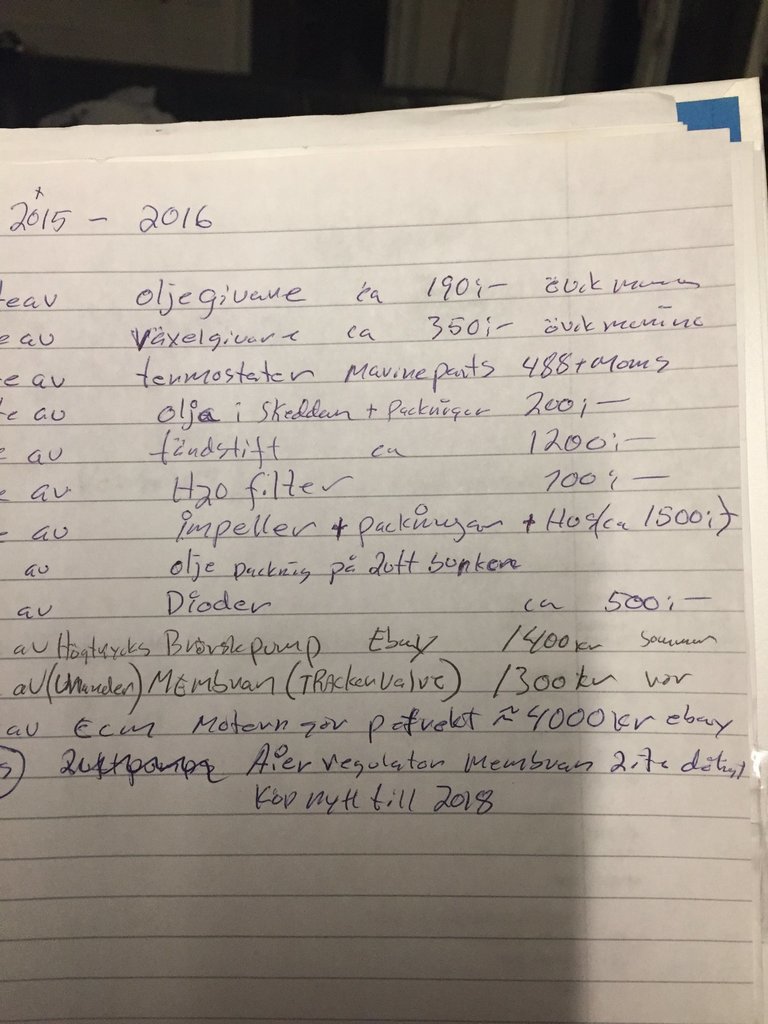 x
2015 - 2016
teav oljegivare ca 190:- övik
e av växelgivare ca 350:- övik marine
e av termostater Marineparts 488+Moms
te av olja i Skeddan + Packningar 200:-
e av tändstift ca 1200:-
e av H2O filter 700:-
- av impeller + packningar + Hos(ca 1500:-)
av olje packnig på
av Dioder ca 500:-
av Högtrycks Bränslepump Ebay 1400kr sommar
av MEmbran (TRAckervalve) 1300kr vår
av Ecm Motorn går pefrekt ≈ 4000kr ebay
regulator Membran
Köp nytt till 2018